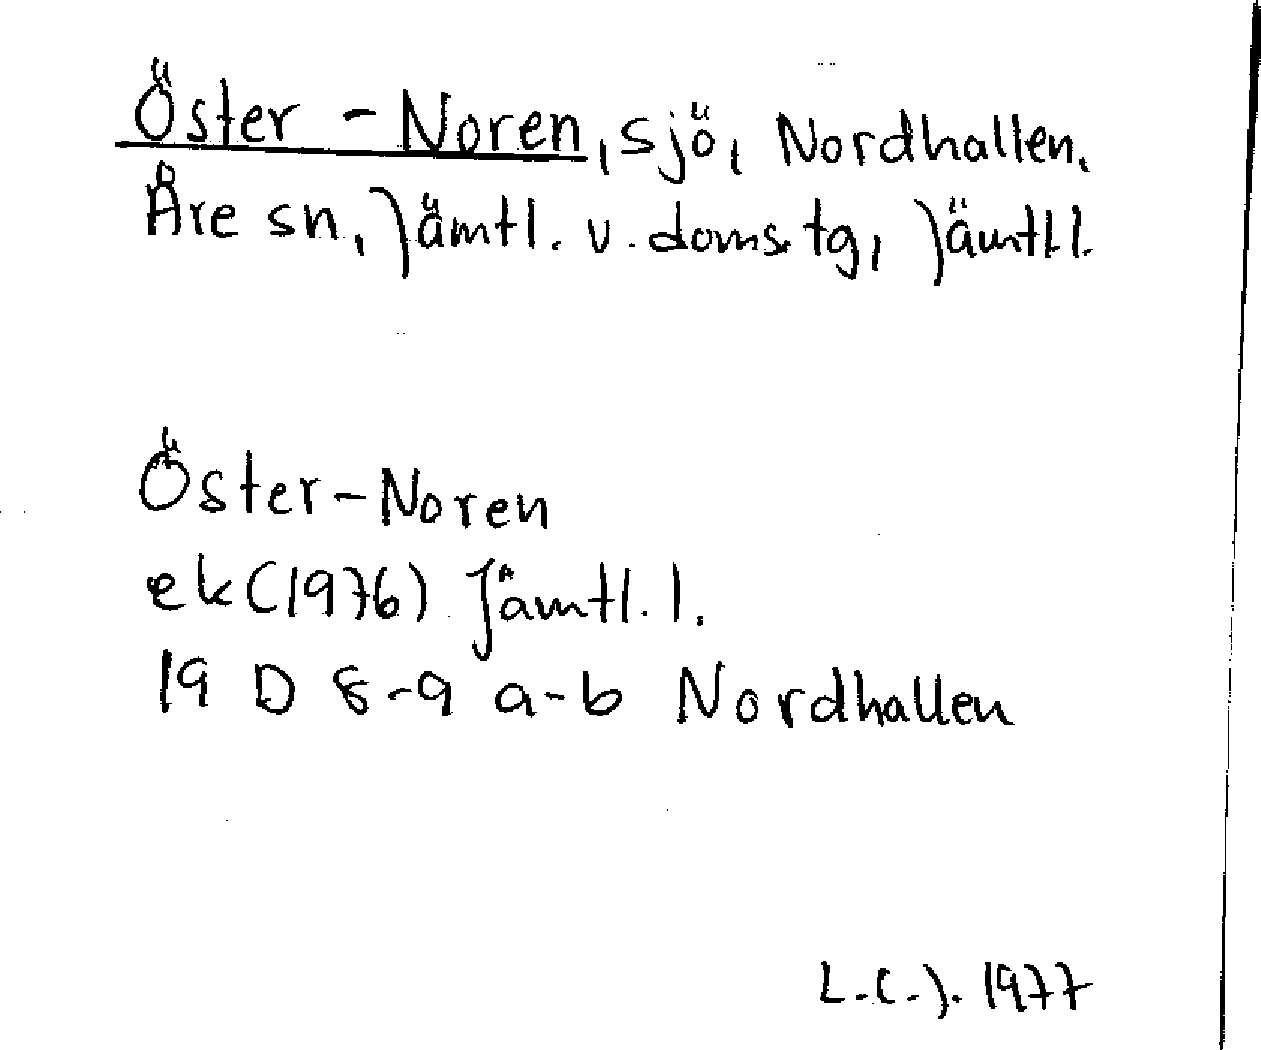 Öster - Noren, sjö, Nordhallen.
Åre sn, Jämtl. v. doms. tg, Jämtl.l.
Öster-Noren
ek (1976) Jämtl.l.
19 D 8-9 a-b Nordhallen
L.C.J. 1977